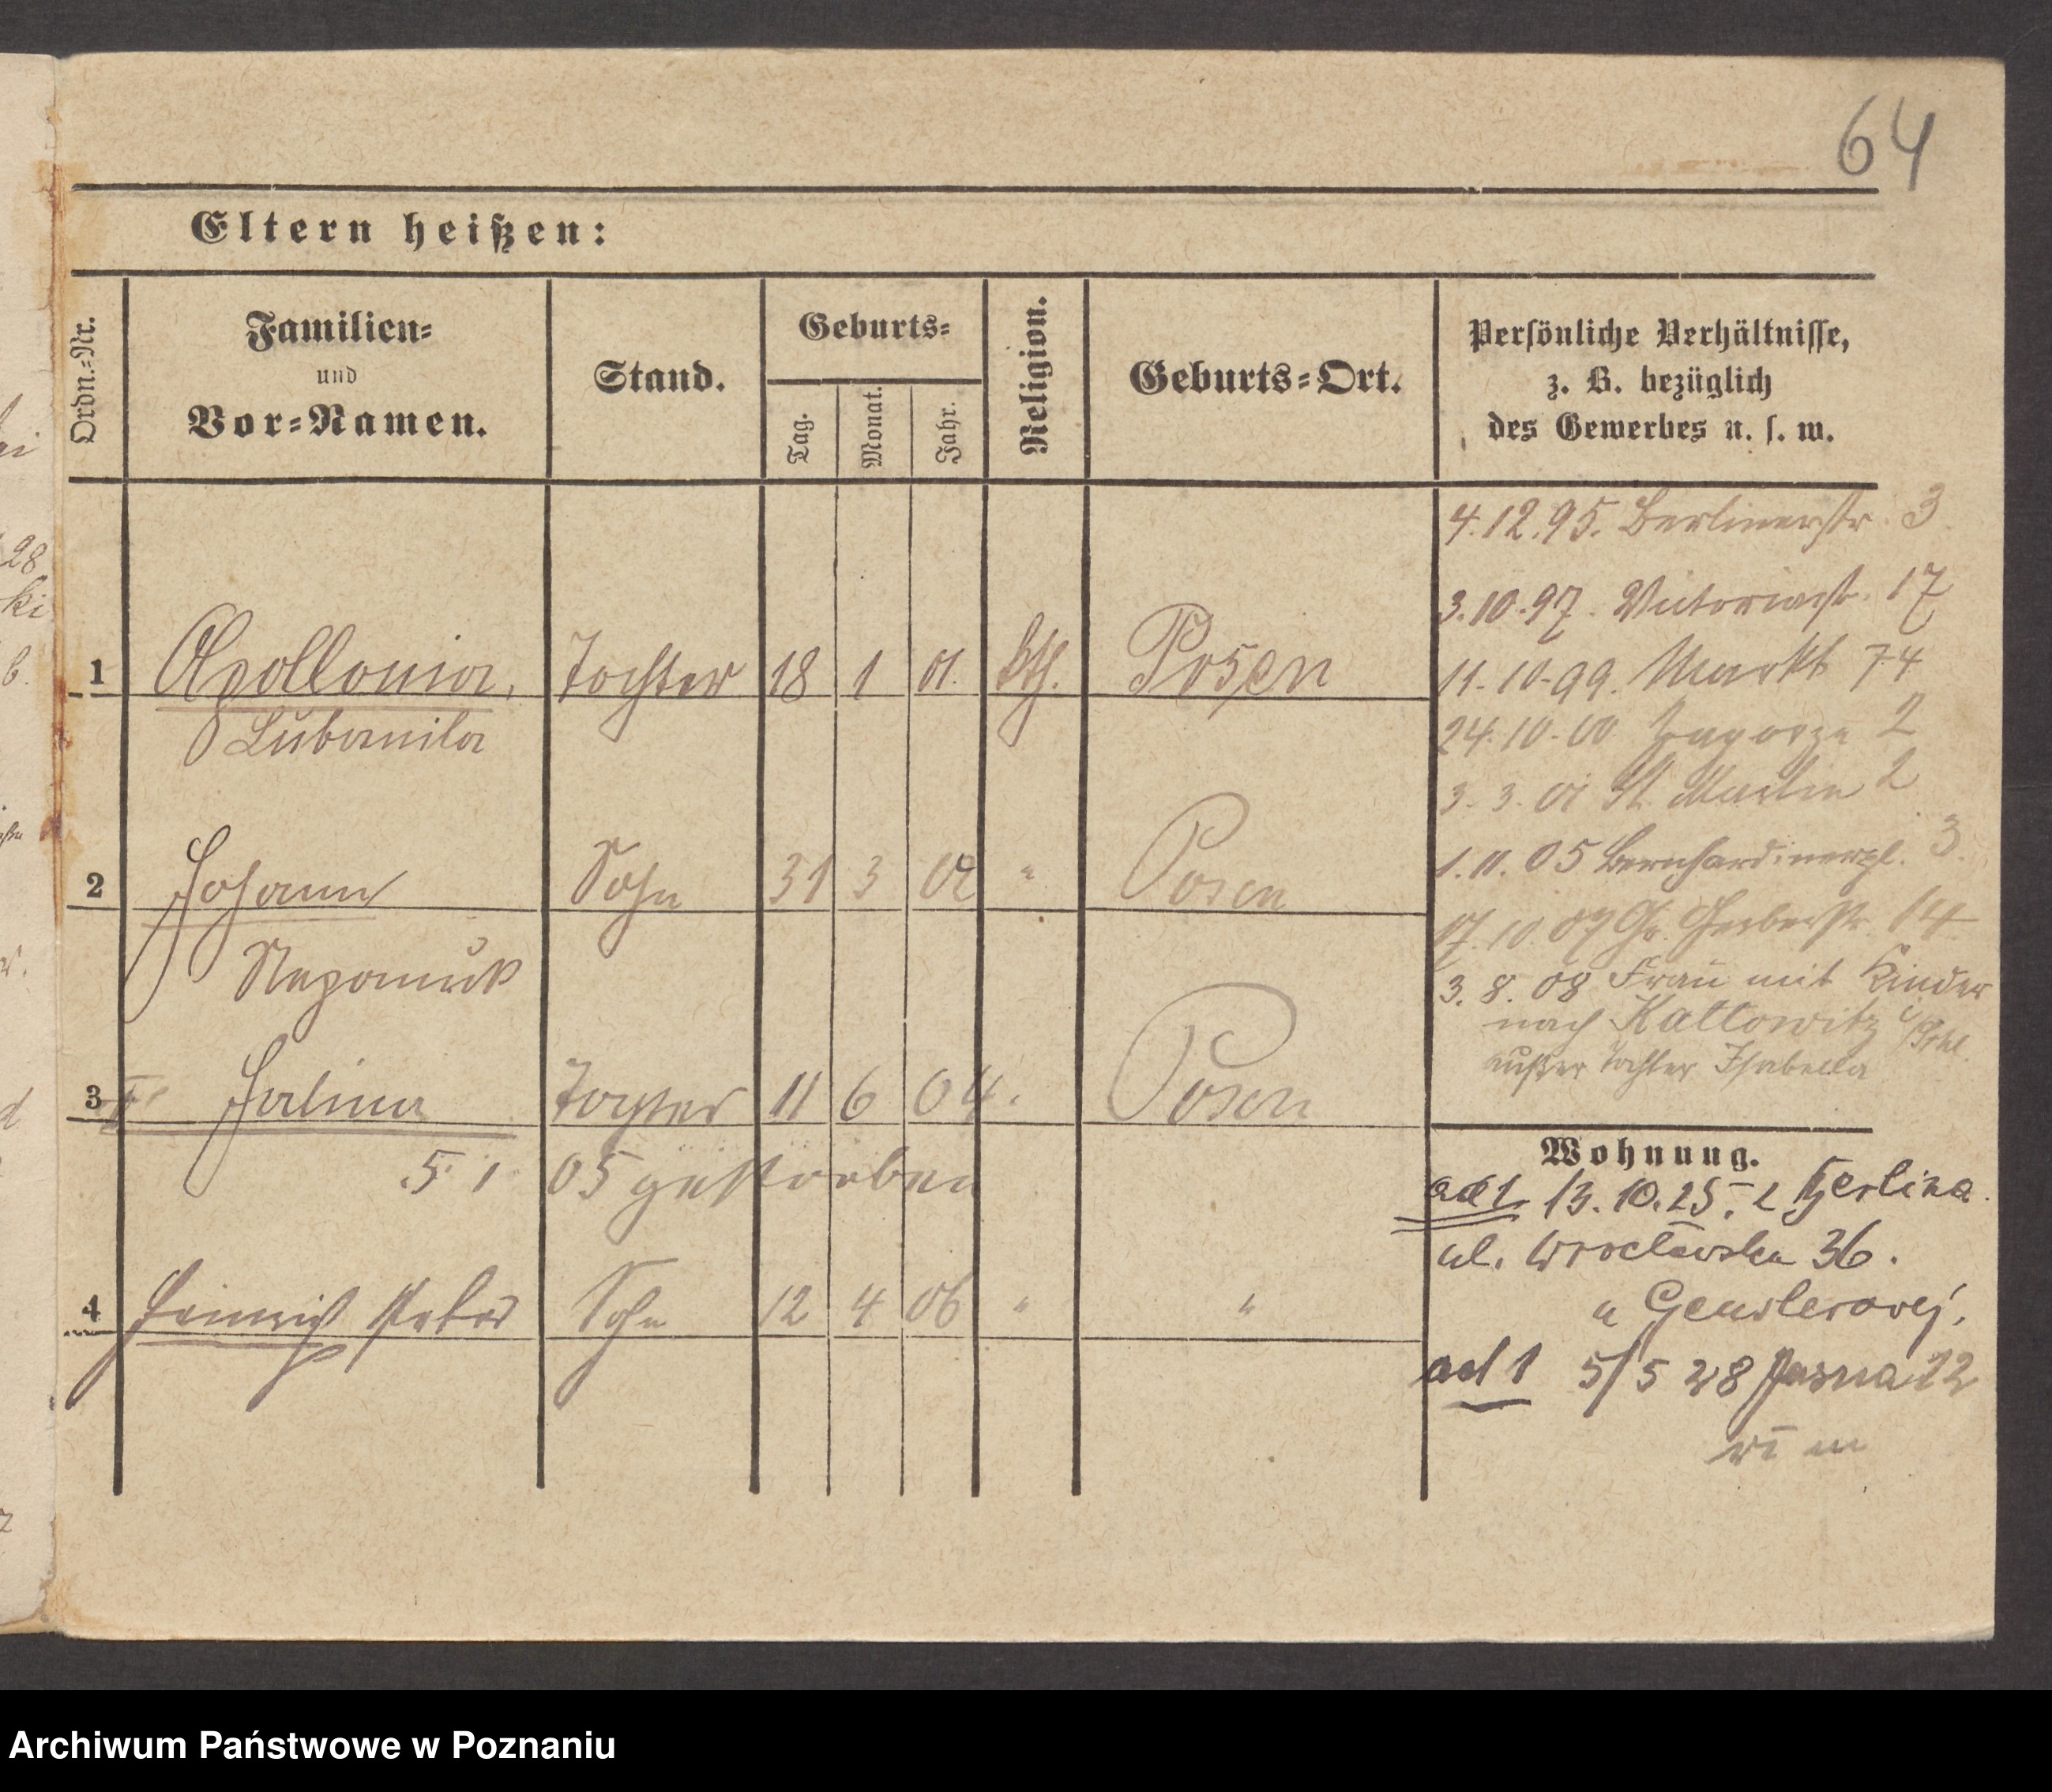 64
Eltern heißen:
Ordn.-Nr.
Familien-
und
Vor-Namen.
Stand.
Geburts-
Tag.
Monat.
Jahr.
Religion.
Geburts-Ort.
Persönliche Verhältnisse,
z. B. bezüglich
des Gewerbes u. s. w.
1 Apollonia, Tochter 18 1 01. kth. Posen
Ludomila
2 Johann Sohn 31 3 02 " Posen
Nepomuk
3 Halina Tochter 11 6 04. Posen
5. 1 05 gestorben
4 Heinrich Peter Sohn 12 4 06 " "
4.12.95. Berlinerstr. 3
3.10.97. Victoriastr. 17
11.10.99. Markt 74
24.10.00 Zagorze 2
3.3.01 St. Martin 2
1.11.05 Bernhardinerpl. 3.
17.10.07 Gr. Gerberstr. 14
3.8.08 Frau mit Kinder
nach Kattowitz
außer Tochter Isabella
Wohnung.
ad 1. 13.10.25. z
ul. Wrocławska 36.
u
ad 1 5/5 28 Jasna 12
28
ki
Archiwum Państwowe w Poznaniu